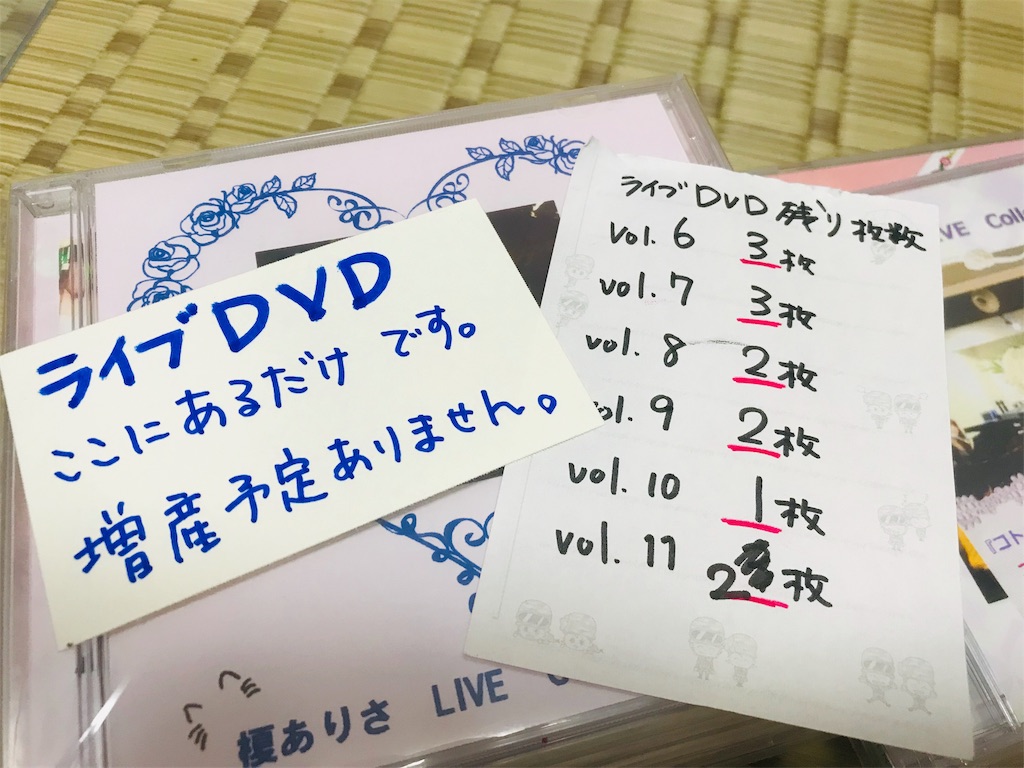 ライブDVD
ここにあるだけです。
増産予定ありません。
ライブDVD 残り枚数
vol. 6 3枚
vol. 7 3枚
vol. 8 2枚
vol. 9 2枚
vol. 10 1枚
vol. 11 2枚
榎ありさ LIVE
VE Coll
『コト